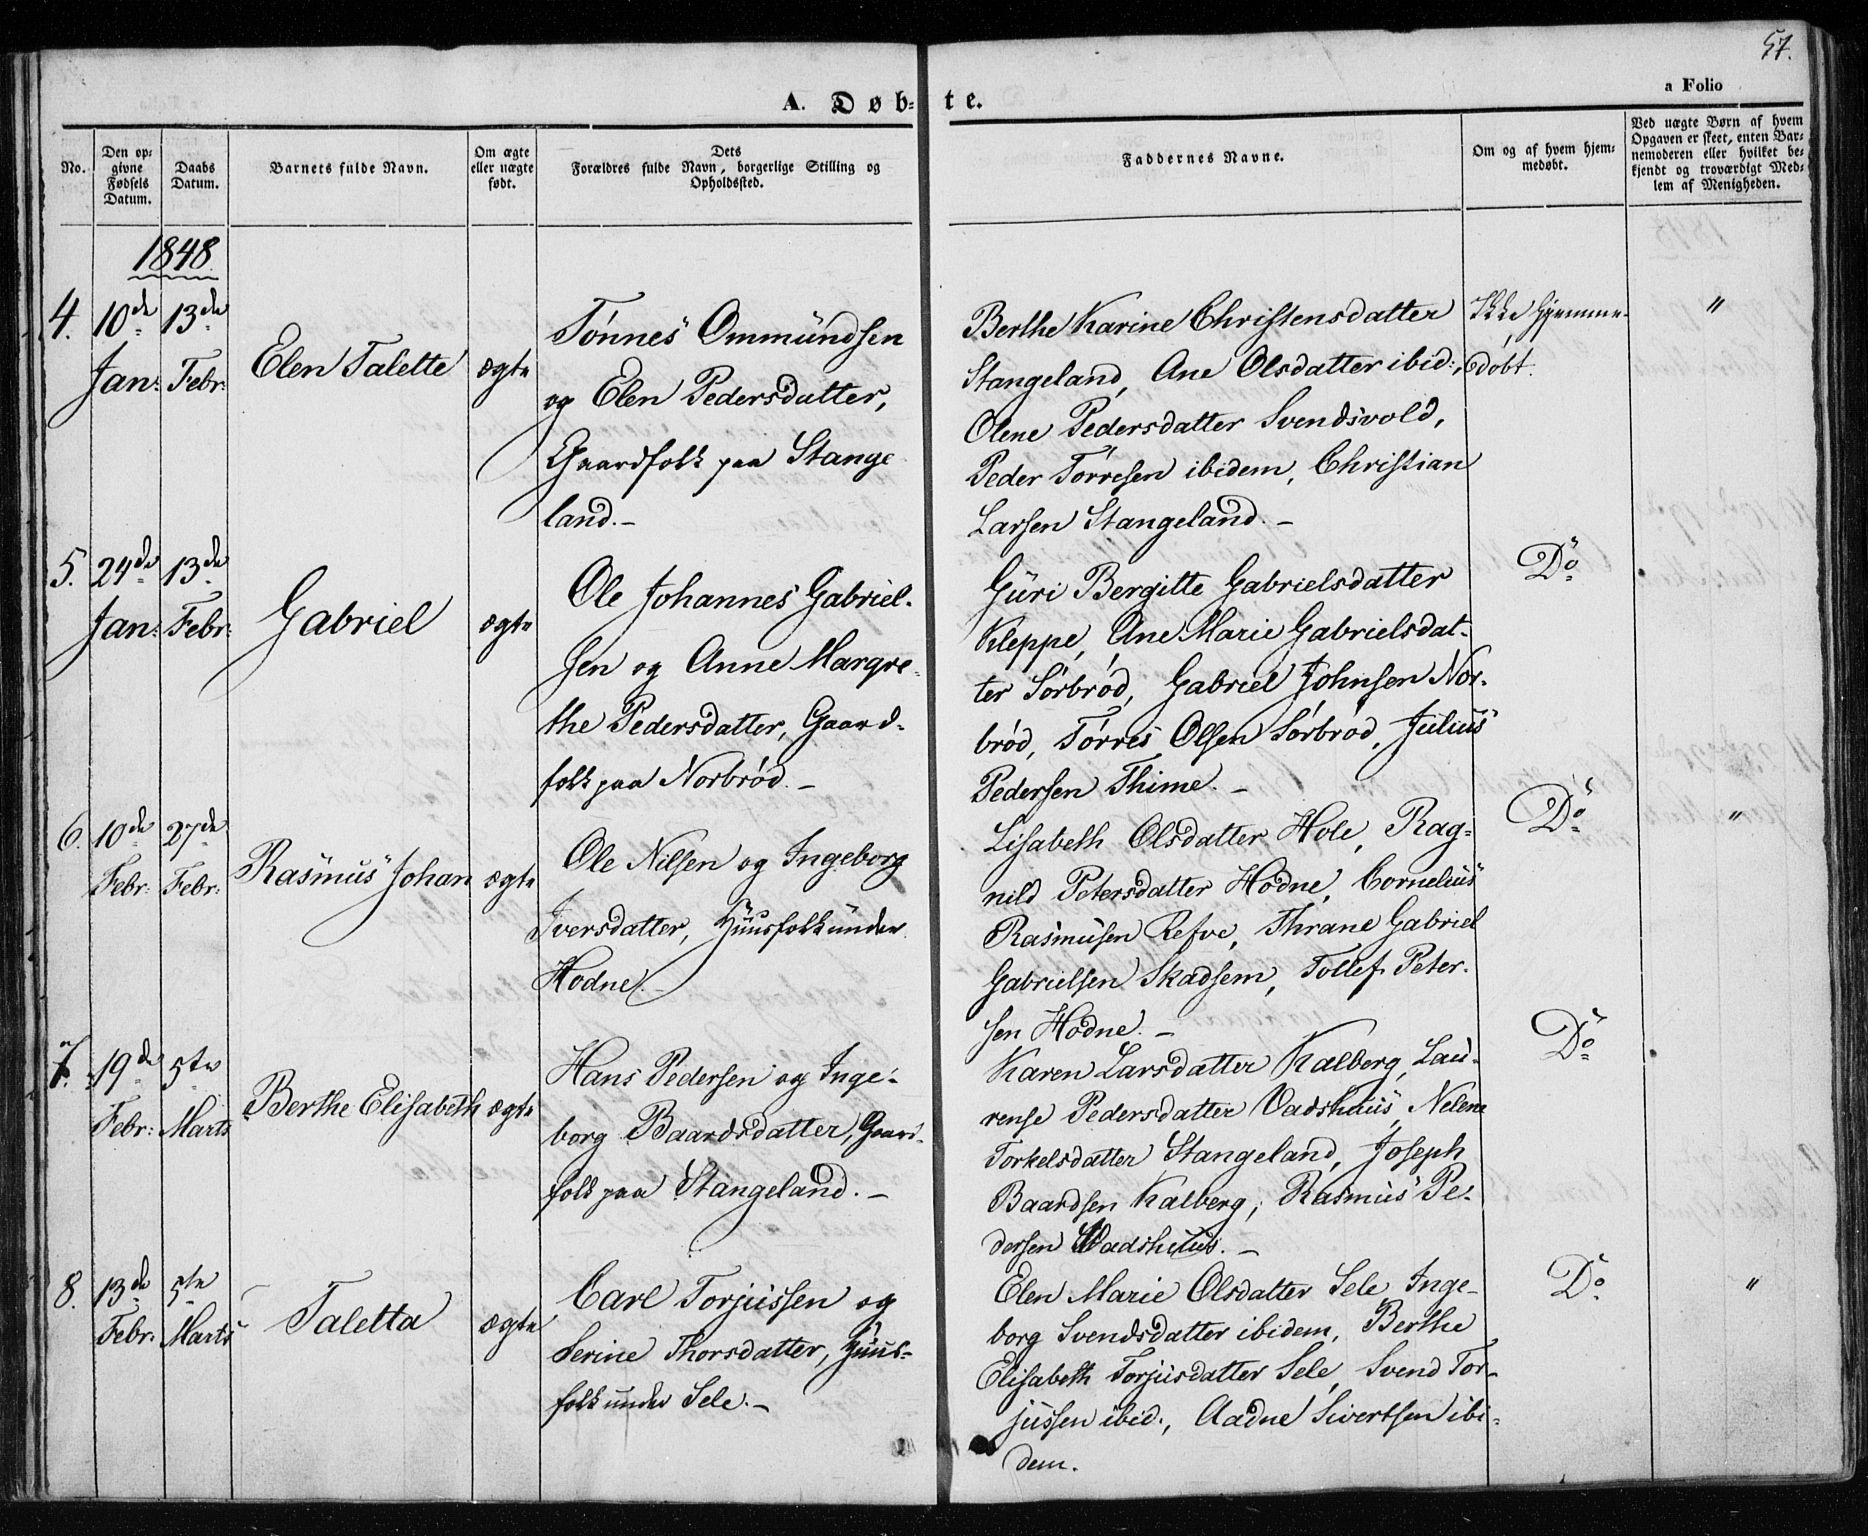 57.
A. Døb=te.
a Folio
No.
Den op=
givne
Fødsels
Datum.
Daabs
Datum.
Barnets fulde Navn.
Om ægte
eller uægte
født.
Dets
Forældres fulde Navn, borgerlige Stilling og
Opholdssted.
Faddernes Navne.
Om og af hvem hjem=
medøbt.
Ved uægte Børn af hvem
Opgaven er skeet, enten Bar=
nemoderen eller hvilket be=
kjendt og troværdigt Med=
lem af Menigheden.
1848
4. 10de Jan: 13de Febr: Elen Talette ægte
Tönnes Ommündsen
og Elen Pedersdatter,
Gaardfolk paa Stange
land.-
Berthe Karine Christensdatter
Stangeland, Ane Olsdatter ibid:,
Olene Pedersdatter Svendsvold,
Peder Törresen ibidem, Christian
Larsen Stangeland.-
Ikke hjemme-
döbt.
"
5. 24de Jan: 13de Febr: Gabriel ægte
Ole Johannes Gabriel-
sen og Anne Margre-
the Pedersdatter, Gaard-
folk paa Norbröd.-
Güri Bergitte Gabrielsdatter
Kleppe, Ane Marie Gabrielsdat-
ter Sörbröd, Gabriel Johnsen Nor-
bröd, Törres Olsen Sörbröd, Julius
Pedersen Thime.-
Do
6. 10de Febr: 27de Febr: Rasmus Johan ægte
Ole Nilsen og Ingeborg
Iversdatter, Huusfolk under
Hodne.-
Lisabeth Olsdatter Hole, Rag-
nild Petersdatter Hodne, Cornelius
Rasmusen Refve, Thrane Gabriel
Gabrielsen Skadsem, Tollef Peter-
sen Hodne.-
Do
"
7. 19de Febr: 5te Marts Berthe Elisabeth ægte
Hans Pedersen og Inge-
borg Baardsdatter, Gaard-
folk paa Stangeland.-
Karen Larsdatter Kalberg, Lau-
rense Pedersdatter Vadshuus, Nelene
Torkelsdatter Stangeland, Joseph
Baardsen Kalberg, Rasmus Pe-
dersen Vadshuus.-
Do
8. 13de Febr: 5te Marts Taletta ægte
Carl Torjussen og
Serine Thorsdatter, Huus-
folk under Sele.-
Elen Marie Olsdatter Sele Inge-
borg Svendsdatter ibidem, Berthe
Elisabeth Torjusdatter Sele, Svend Tor-
jussen ibid., Aadne Sivertsen ibi-
dem.
Do
"